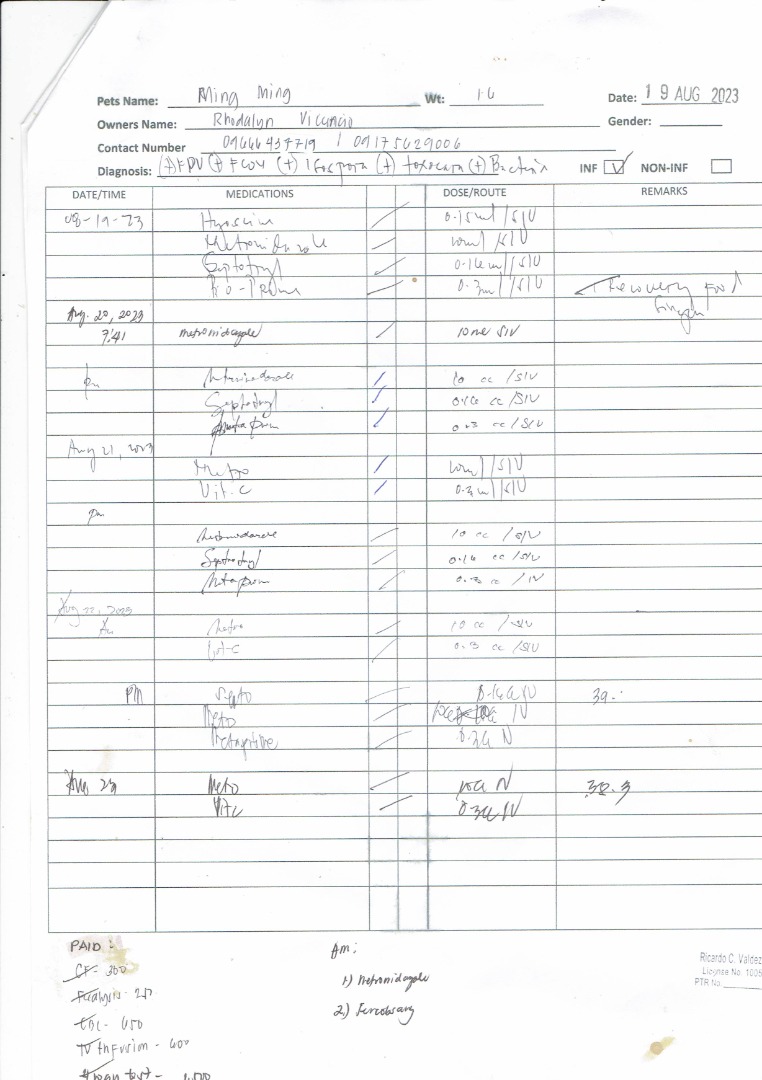 Pets Name: Ming Ming Wt: 1.6 Date: 19 AUG 2023
Owners Name: Rhodalyn Gender:
Contact Number 09666437719 / 09175629006
Diagnosis: (+) FPV (+) FCOV (+) Isospora (+) toxocara (+) Bacteria INF NON-INF
DATE/TIME MEDICATIONS DOSE/ROUTE REMARKS
08-19-23 Hyoscine 0.15ml /SIV
Metronidazole 10ml /SIV
Septotryl 0.16ml /SIV
0.3ml /SIV Recovery Food
Aug. 20, 2023
7:41 metronidazole 10ml SIV
pm metronidazole 10 cc /SIV
Septotryl 0.16 cc /SIV
0.3 cc /SIV
Aug 21, 2023
Metro 10ml /SIV
Vit. C 0.3ml /SIV
pm
metronidazole 10 cc /SIV
Septotryl 0.16 cc /SIV
0.3 cc /IV
Aug 22, 2023
Metro 10 cc /SIV
Vit-C 0.3 cc /SIV
PM Septo 0.16cc IV 39.
Metro IV
0.3cc IV
Aug 23 Metro 10cc IV 38.3
Vit c 0.3cc IV
PAID:
CF - 300
Fecalysis - 250
CBC - 650
IV Infusion - 600
test -
Am:
1) metronidazole
2)
Ricardo C. Valdez
License No. 1005
PTR No.